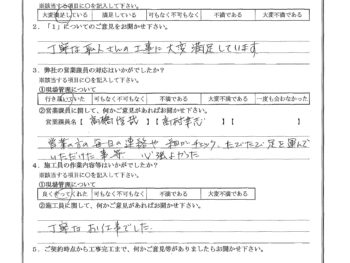 ※該当する項目に○を記入して下さい。
大変満足している 満足している 可もなく不可もなく 不満である 大変不満である
2．「1」についてのご意見をお聞かせ下さい。
丁寧な職人さんの工事に大変満足しています
3．弊社の営業議員の対応はいかがでしたか？
※該当する項目に○を記入して下さい。
①現場管理について
行き届いていた 可もなく不可もなく 不満である 大変不満である 一度も会わなかった
②営業議員に関して、何かご意見があればお聞かせ下さい。
営業議員名【 高橋 】【 高村幸志 】【 】
営業の方の毎日の連絡や 細かチェック、たびたび足を運んで
いただけた事等 心強よかった
4．施工員の作業内容等はいかがでしたか？
※該当する項目に○を記入して下さい。
①現場管理について
良くやってくれた 可もなく不可もなく 不満である 大変不満である
②施工員に関して、何かご意見があればお聞かせ下さい。
丁寧なお仕事でした。
5．ご契約時点から工事完工まで、何かご意見等がありましたらお聞かせ下さい。